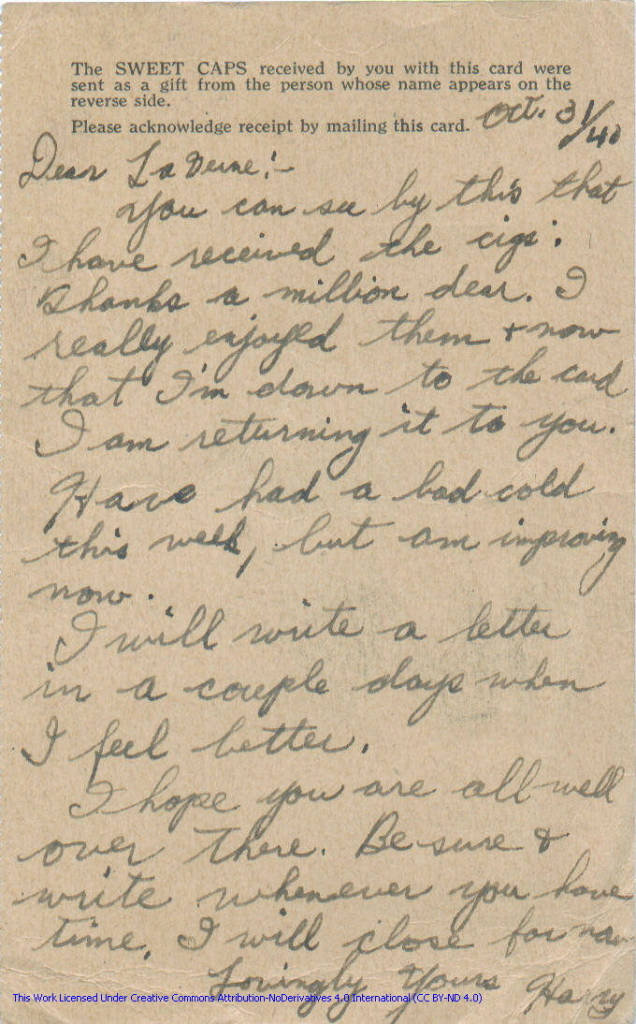 The SWEET CAPS received by you with this card were
sent as a gift from the person whose name appears on the
reverse side.
Please acknowledge receipt by mailing this card. Oct. 31/40
Dear LaVerne:-
You can see by this that
I have received the cigs.
Thanks a million dear. I
really enjoyed them + now
that I'm down to the card
I am returning it to you.
Have had a bad cold
this week, but am improving
now.
I will write a letter
in a couple days when
I feel better.
I hope you are all well
over there. Be sure &
write whenever you have
time. I will close for now
Lovingly Yours Harry
This Work Licensed Under Creative Commons Attribution-NoDerivatives 4.0 International (CC BY-ND 4.0)